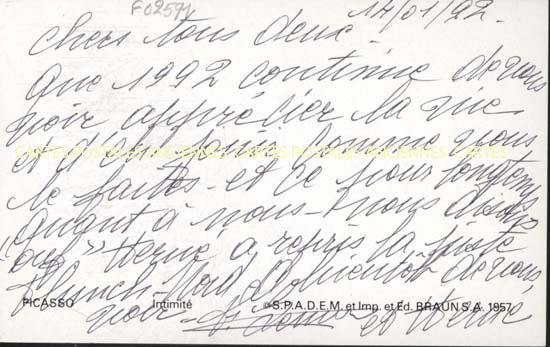 F02591
14/01/92.
Chers tous deux -
Que 1992 continue de vous
voir apprécier la vie
et comme vous
CARTES POSTALES ANCIENNES CARTES POSTALES ANCIENNES CARTES
le faites - et ce pour longtemps
Quant à nous - nous disons
"ouf" Hervé a repris la
Lunch - A bientôt de vous
PICASSO Intimité © S.P.A.D.E.M. et Imp. et Ed. BRAUN S.A. 1957
voir - et Hervé